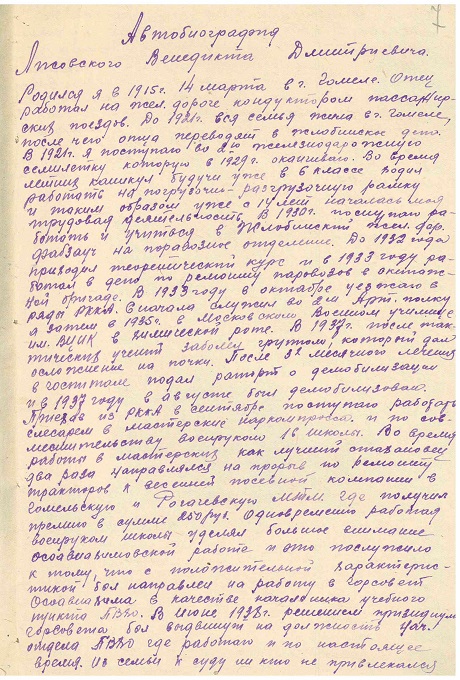 7
Автобиография
Лисовского Венедикта Дмитриевича.
Родился я в 1915г. 14 марта в г. Гомеле. Отец
работал на жел. дороге кондуктором пассажир-
ских поездов. До 1921г. вся семья жила в г. Гомеле,
после чего отца переводят в Жлобинское депо.
В 1921г. я поступаю во 2ю железнодорожную
семилетку которую в 1929г. оканчиваю. Во время
летних каникул будучи уже в 6 классе ходил
работать на погрузочно-разгрузочную рампу
и таким образом уже с 14 лет началась моя
трудовая деятельность. В 1930г. поступаю ра-
ботать и учиться в Жлобинский жел. дор.
фабзауч на паровозное отделение. До 1932 года
приходил теоретический курс и в 1933 году ра-
ботал в депо по ремонту паровозов в
бригаде. В 1933 году в октябре уезжаю в
ряды РККА. Вначале служил во 2м Арт. полку
а затем в 1935г. в Московском Военном училище
им. ВЦИК в химической роте. В 1937г. после так-
тических учений заболел гриппом, который дал
осложнение на почки. После месячного лечения
в госпитале подал рапорт о демобилизации
и в 1937 году в августе был демобилизован.
Приехав из РККА в сентябре поступаю работать
слесарем в мастерские наркомпроса. и по сов-
местительству военруком 16 школы. Во время
работы в мастерских как лучший стахановец
два раза направлялся на прорыв по ремонту
тракторов к весенней посевной компании в
Гомельскую и Рогачевскую МТМ где получил
премию в сумме 250 руб. Одновременно работая
военруком школы уделял большое внимание
осоавиахимовской работе и это послужило
к тому, что с положительной характерис-
тикой был направлен на работу в Горсовет
Осоавиахима в качестве начальника учебного
пункта ПВХО. В июне 1938г. решением президиума
горсовета был выдвинут на должность нач.
отдела ПВХО где работаю и по настоящее
время. Из семьи к суду никто не привлекался